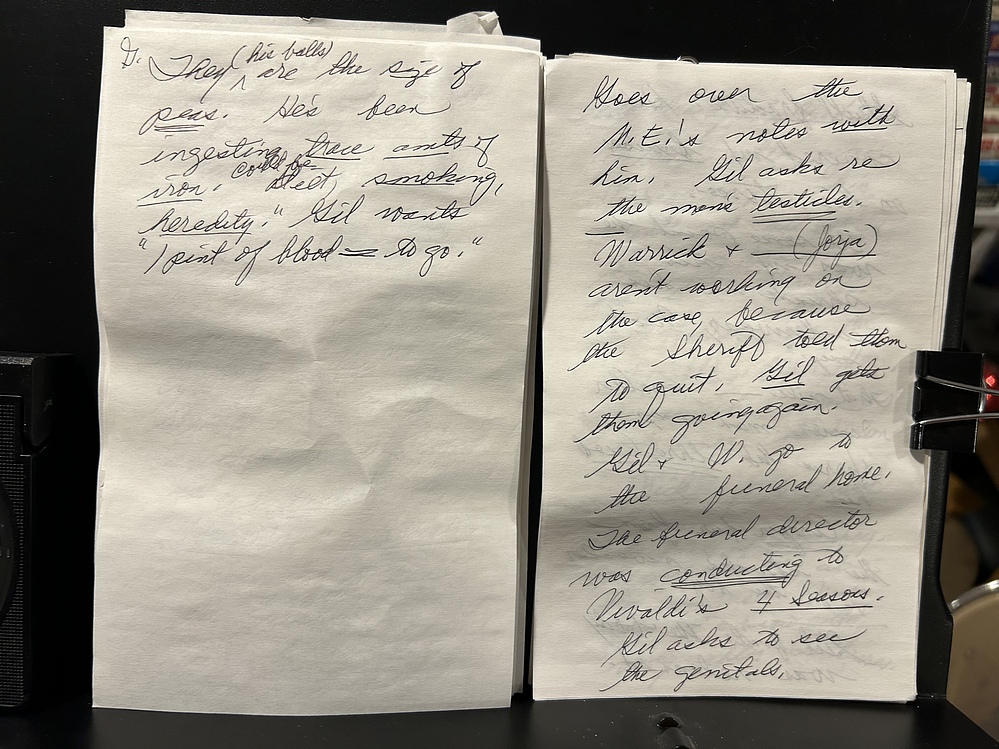 G. They (his balls) are the size of
peas. He's been
ingesting trace amts of
iron. could be diet, smoking,
heredity." Gil wants
"1 pint of blood = to go."
Goes over the
M.E.'s notes with
him. Gil asks re
the men's testicles.
Warrick + ___ (Jorja)
aren't working on
the case, because
the Sheriff told them
to quit. Gil gets
them going again.
Gil + W. go to
the funeral home.
The funeral director
was conducting to
Vivaldi's 4 Seasons.
Gil asks to see
the genitals.